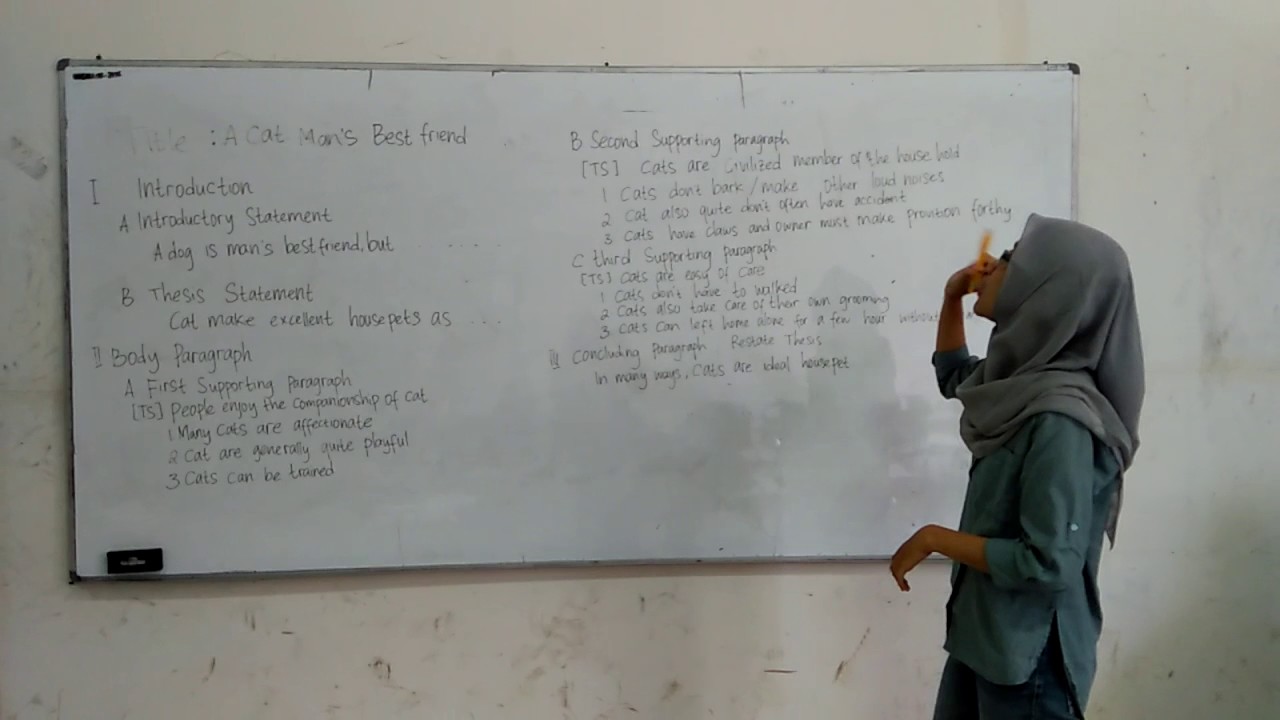 Title : A Cat Man's Best friend
I Introduction
A Introductory Statement
A dog is man's best friend, but ....
B Thesis Statement
Cat make excellent housepets as ....
II Body Paragraph
A First Supporting Paragraph
[TS] People enjoy the companionship of cat
1 Many Cats are affectionate
2 Cat are generally quite playful
3 Cats can be trained
B Second Supporting Paragraph
[TS] Cats are civilized member of the house hold
1 Cats don't bark / make other loud noises
2 Cat also quite don't often have accident
3 Cats have claws and owner must make provition forthy
C third Supporting Paragraph
[TS] Cats are easy of care
1 Cats don't have to walked
2 Cats also take care of their own grooming
3 Cats can left home alone for a few hour without
III Concluding Paragraph Restate Thesis
In many ways, Cats are ideal housepet